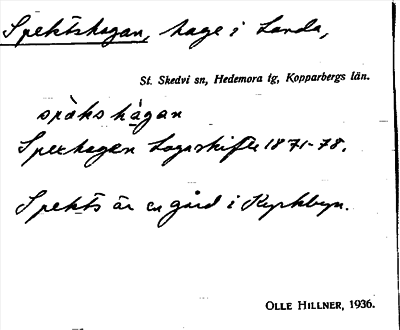 Spektshagan, hage i Landa,
St. Skedvi sn, Hedemora tg, Kopparbergs län.
spàks hágan
Spexhagen Lagaskifte 1871-78.
Spekts är en gård i Kyrkbyn.
OLLE HILLNER, 1936.